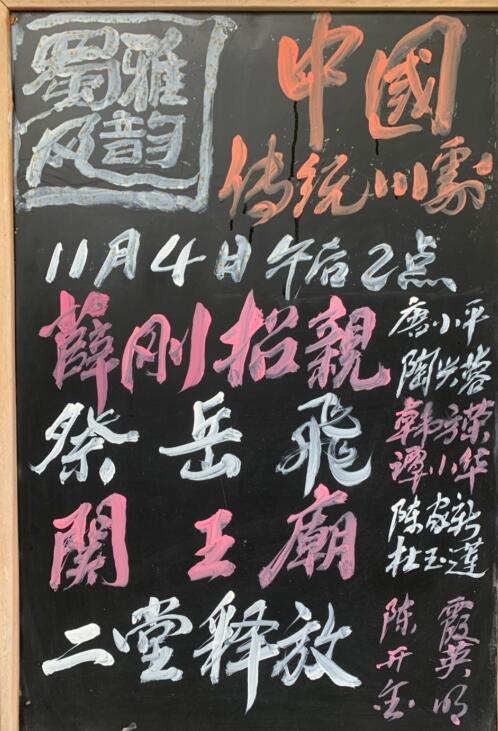 蜀雅
风韵
中國
传统川劇
11月4日午后2点
薛刚招親
唐小平
陶兴蓉
祭岳飛
韩方荣
谭小华
関王廟
陈家新
杜玉莲
二堂释放
陈开金
霞英明